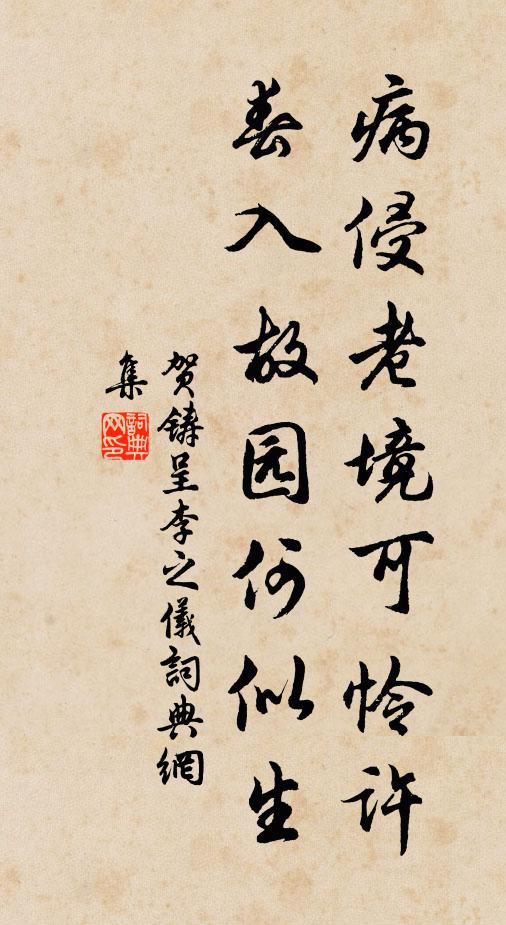 病侵老境可怜许
春入故园何似生
贺鑄呈李之儀詞典網
集
詞典网印